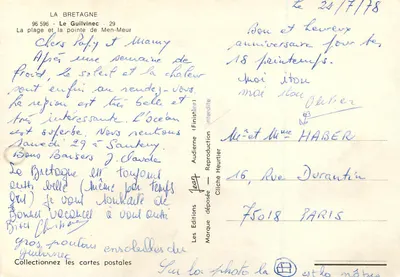 LA BRETAGNE
96 596 - Le Guilvinec - 29
La plage et la pointe de Men-Meur
Chers Papy et Mamy
Après une semaine de
froid, le soleil et la chaleur
sont enfin au rendez-vous.
La région est très belle et
très intéressante. L'océan
est superbe. Nous rentrons
Samedi 29 à Santeny.
Bons Baisers J. Claude
La Bretagne est toujours
aussi belle (même par temps
gris) je vous souhaite de
Bonnes vacances à vous aussi
Bises
gros poutou ensoleillés du
Guilvinec
Collectionnez les cartes postales
Sur la photo la est la même
Les Editions Jack Audierne (Finistère)
Marque déposée - Reproduction interdite
Cliché Heurtier
le 21/7/78
Bon et heureux
anniversaire pour tes
18 printemps.
moi itou
moi itou
Olivier
Mr et Mme HABER
16, Rue Durantin
75018 PARIS